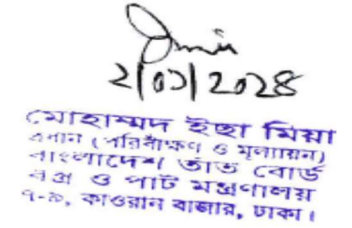 ২/০১/২০২৪
মোহাম্মদ ইছা মিয়া
প্রধান (পরিবীক্ষণ ও মূল্যায়ন)
বাংলাদেশ তাঁত বোর্ড
বস্ত্র ও পাট মন্ত্রণালয়
৭-৯, কাওরান বাজার, ঢাকা।